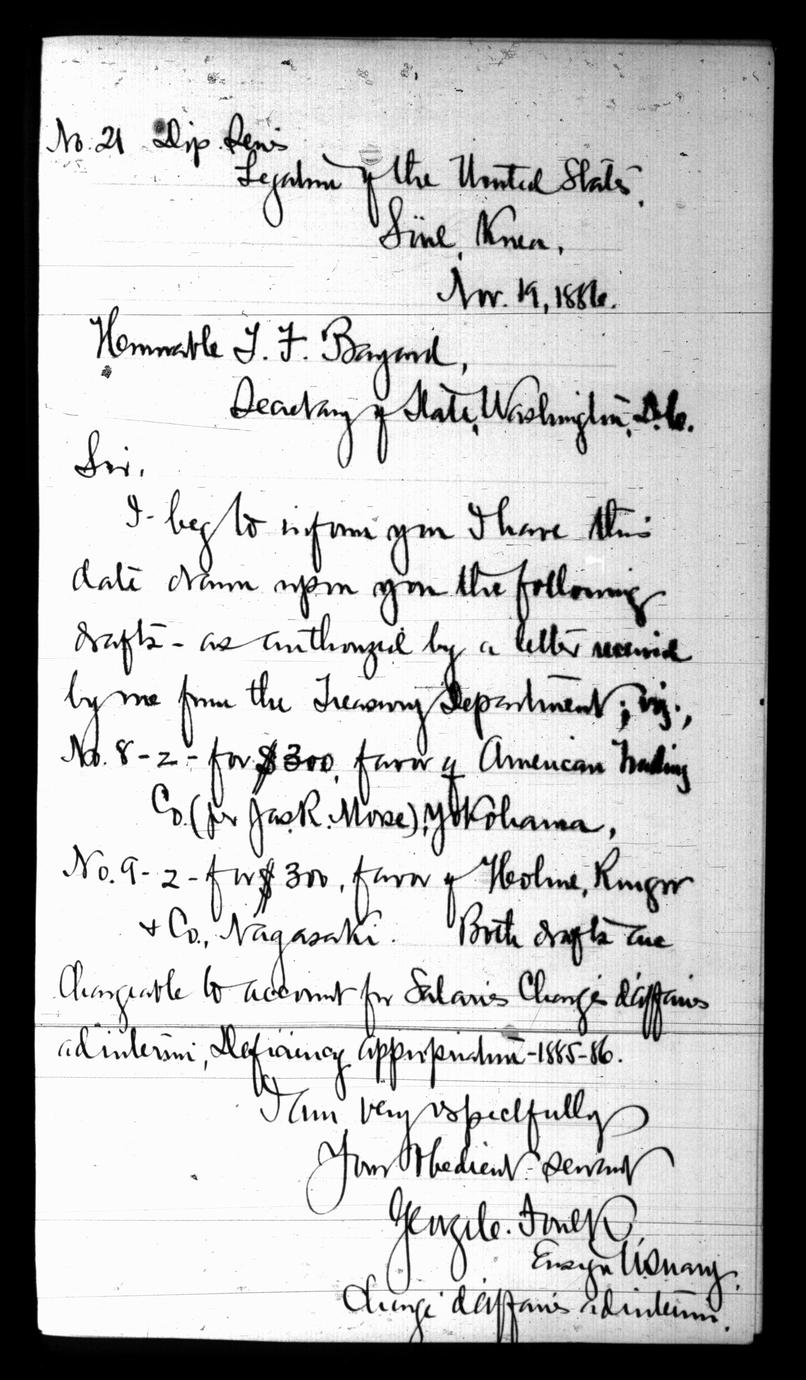 No. 21 Dip. Series
Legation of the United States,
Söul, Korea,
Nov. 19, 1886.
Honorable T. F. Bayard,
Secretary of State, Washington, D.C.
Sir.
I beg to inform you I have this
date drawn upon you the following
drafts - as authorized by a letter received
by me from the Treasury Department; viz.,
No. 8-2- for $300, favor of American Trading
Co. (per Jas. R. Morse), Yokohama,
No. 9-2- for $300, favor of Holme, Ringer
& Co., Nagasaki. Both drafts are
Chargeable to account for Salaries Chargés d'affaires
ad interim, Deficiency appropriation-1885-86.
I am very respectfully
Your obedient servant
George C. Foulk,
Ensign U.S. Navy,
Chargé d'affaires ad interim.